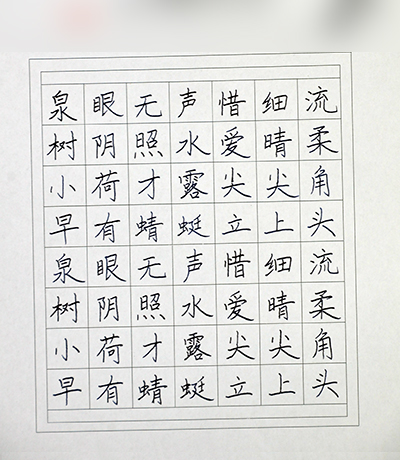 泉眼无声惜细流
树阴照水爱晴柔
小荷才露尖尖角
早有蜻蜓立上头
泉眼无声惜细流
树阴照水爱晴柔
小荷才露尖尖角
早有蜻蜓立上头